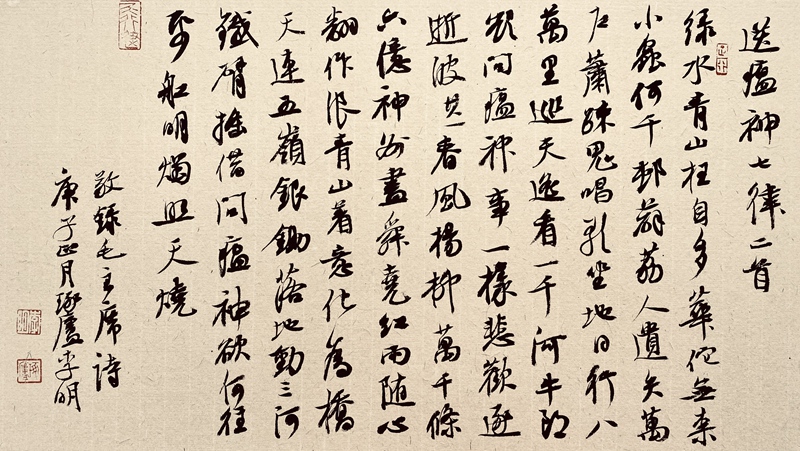 送瘟神七律二首
绿水青山枉自多華佗無奈
小蟲何千邨薜荔人遺矢萬
户蕭疎鬼唱歌坐地日行八
萬里巡天遥看一千河牛郎
欲问瘟神事一樣悲歡逐
逝波其一春風楊柳萬千條
六億神州盡舜堯红雨随心
翻作浪青山着意化為橋
天連五嶺銀鋤落地動三河
鐵臂摇借问瘟神欲何往
帋船明燭照天燒
敬録毛主席诗
庚子正月琢廬李明